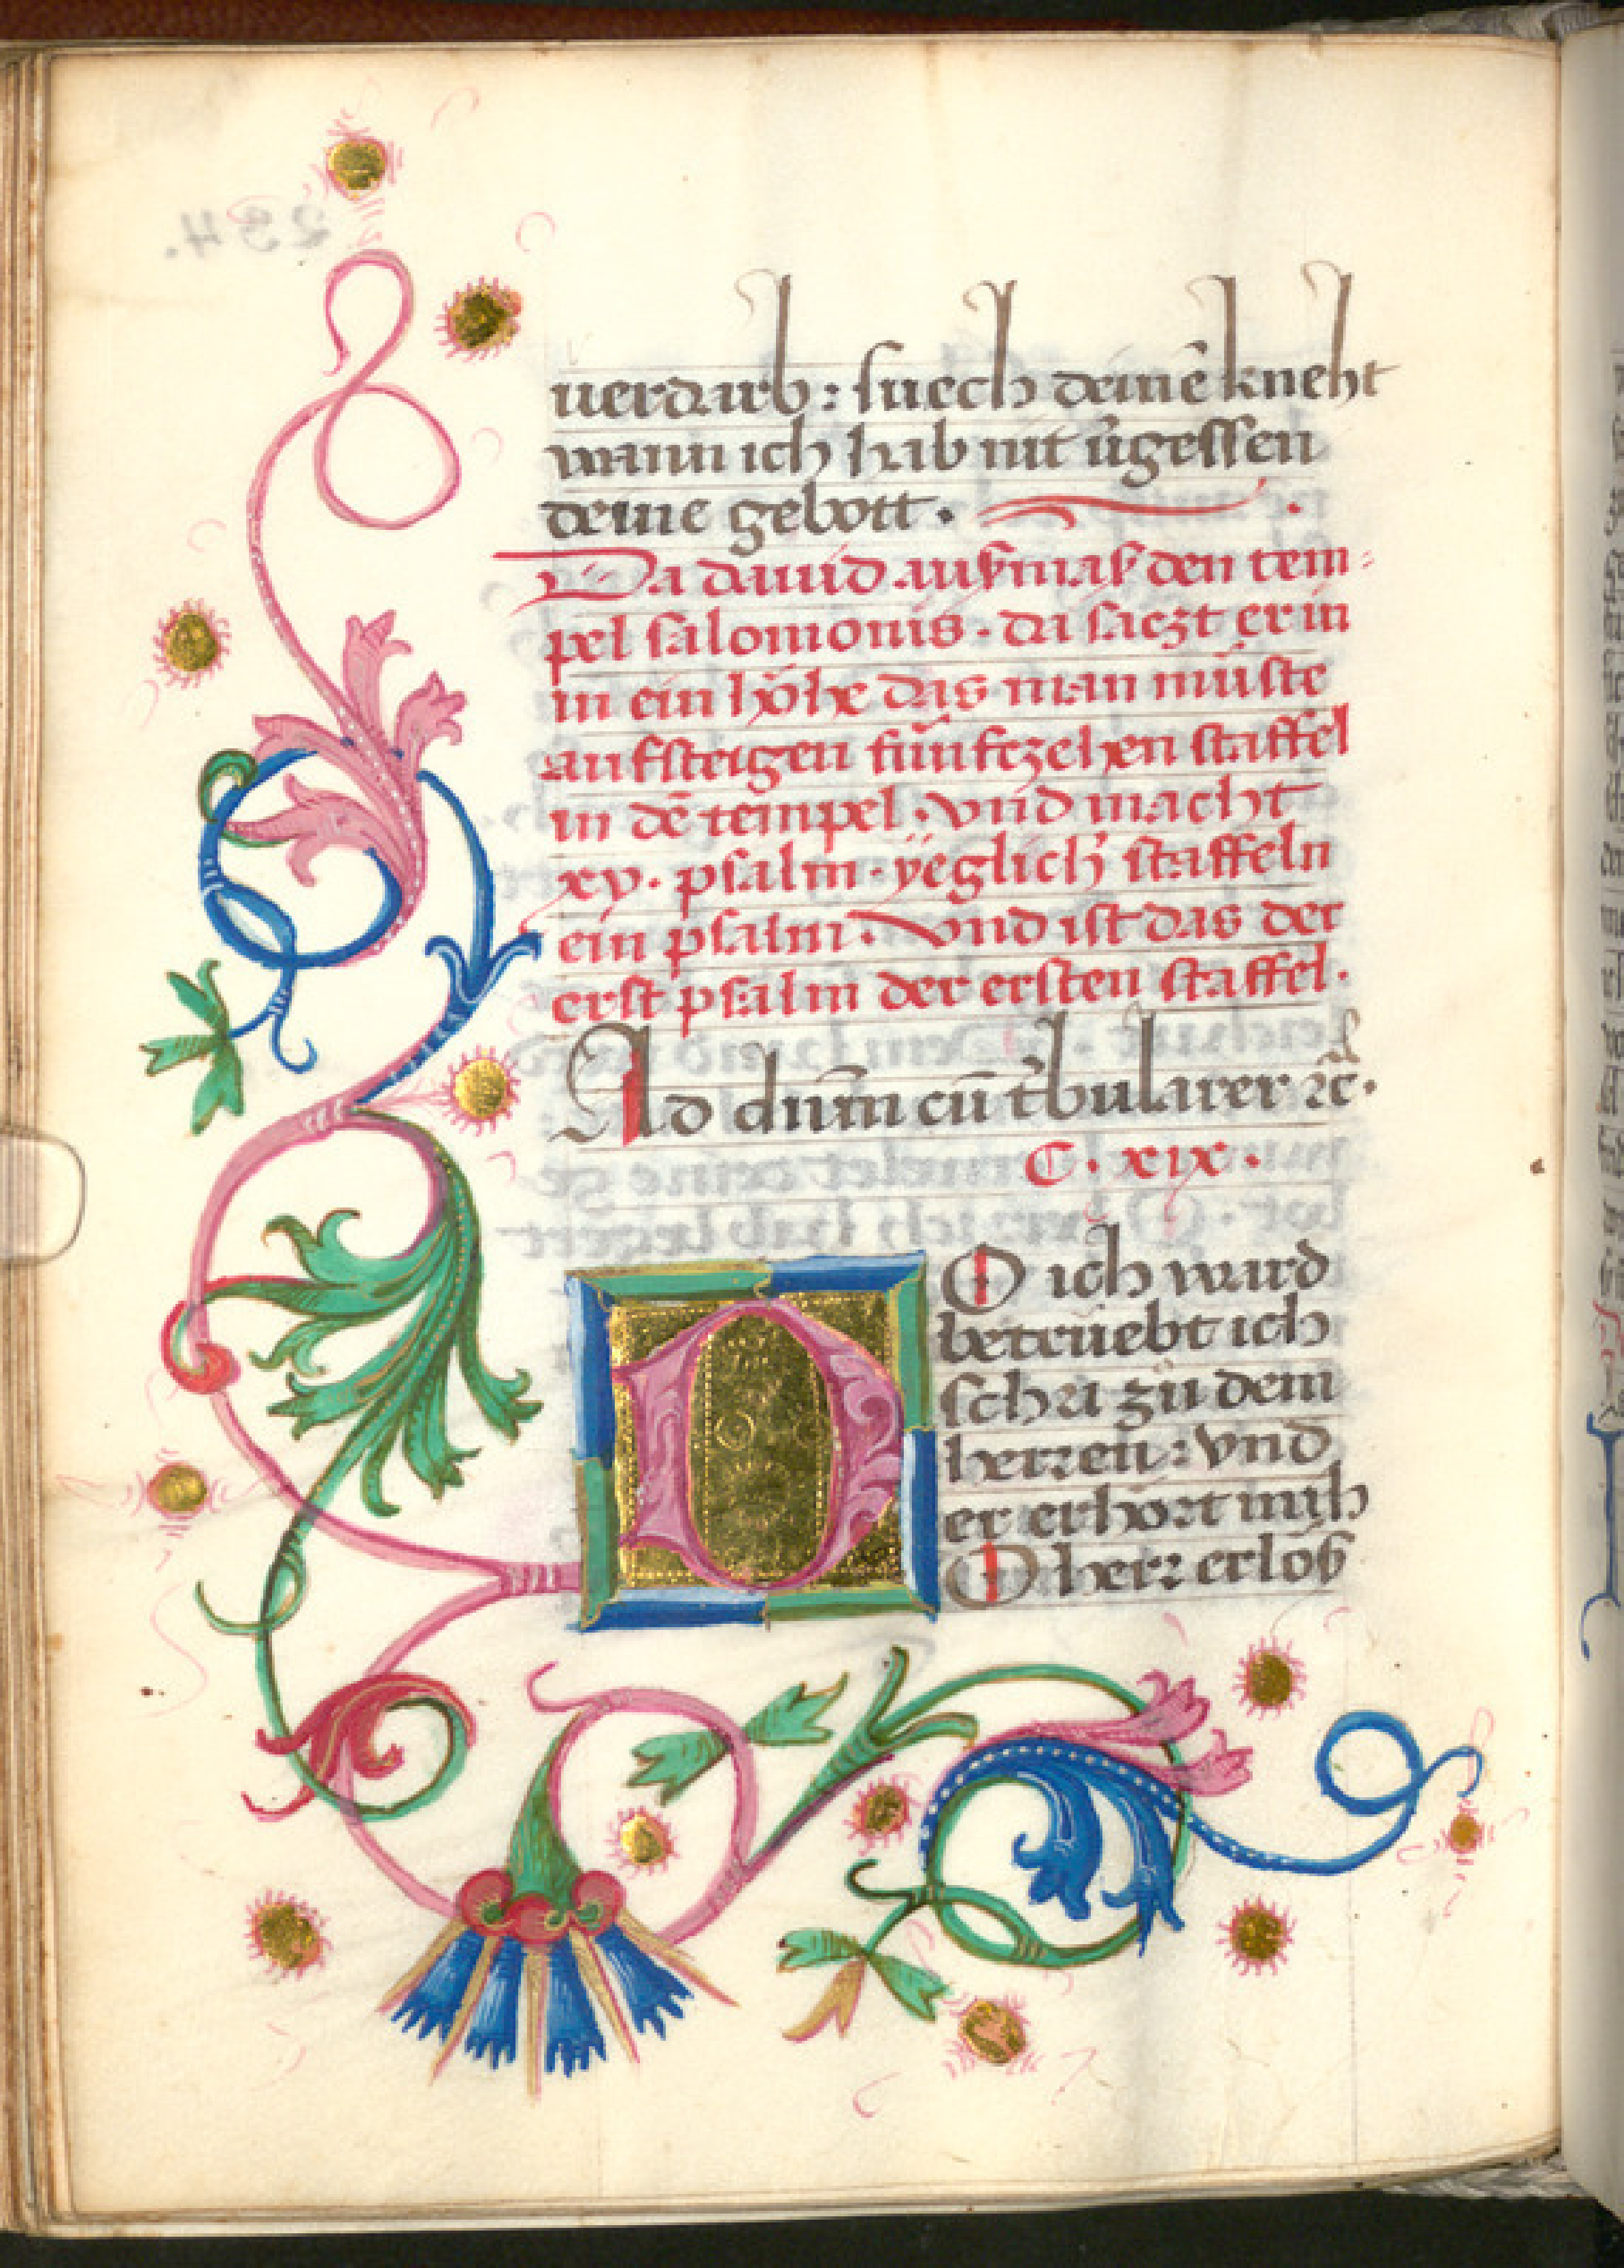 uerdarb : suech deinē kneht
wann ich hab nit ũgessen
deine gebott .
Da dauid ausmas den tem¬
pel salomonis . da saczt er in
in ein höhe das man müste
aufsteigen fünfczehen staffel
in dē tempel . vnd macht
xv . psalm . ÿeglich' staffeln
ein psalm . Vnd ist das der
erst psalm der ersten staffel .
Ad dnūm cū t̾bularer ⁊c̄ .
C . xix .
DO ich ward
betrüebt ich
schri zü dem
herren : vnd
er erhört mih
O herr erlöß